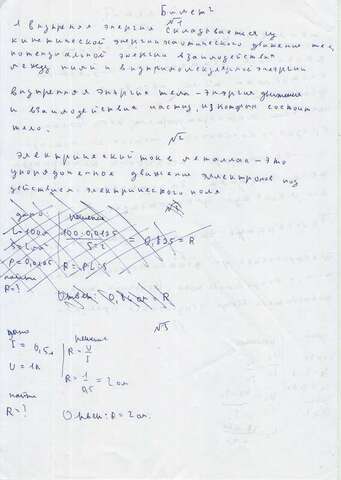 Билет 2
№1
1 Внутренняя энергия складывается из
кинетической энергии хаотического движение тел,
потенциальной энергии взаимодействия
между ними и внутримолекулярной энергии
Внутренняя энергия тела - энергия движения
и взаимодействия частиц, из которых состоит
тело.
№2
Электрический ток в металлах - Это
упорядоченное движение электронов под
действием электрического поля
дано решение
100·0,0175 = 0,875 = R
S=2
R = ρL:S
найти
R=?
Ответ:
№3
дано решение
I = 0,5А R = U/I
U = 1В
R = 1/0,5 = 2 ом
найти
R=? Ответ: R = 2 ом.